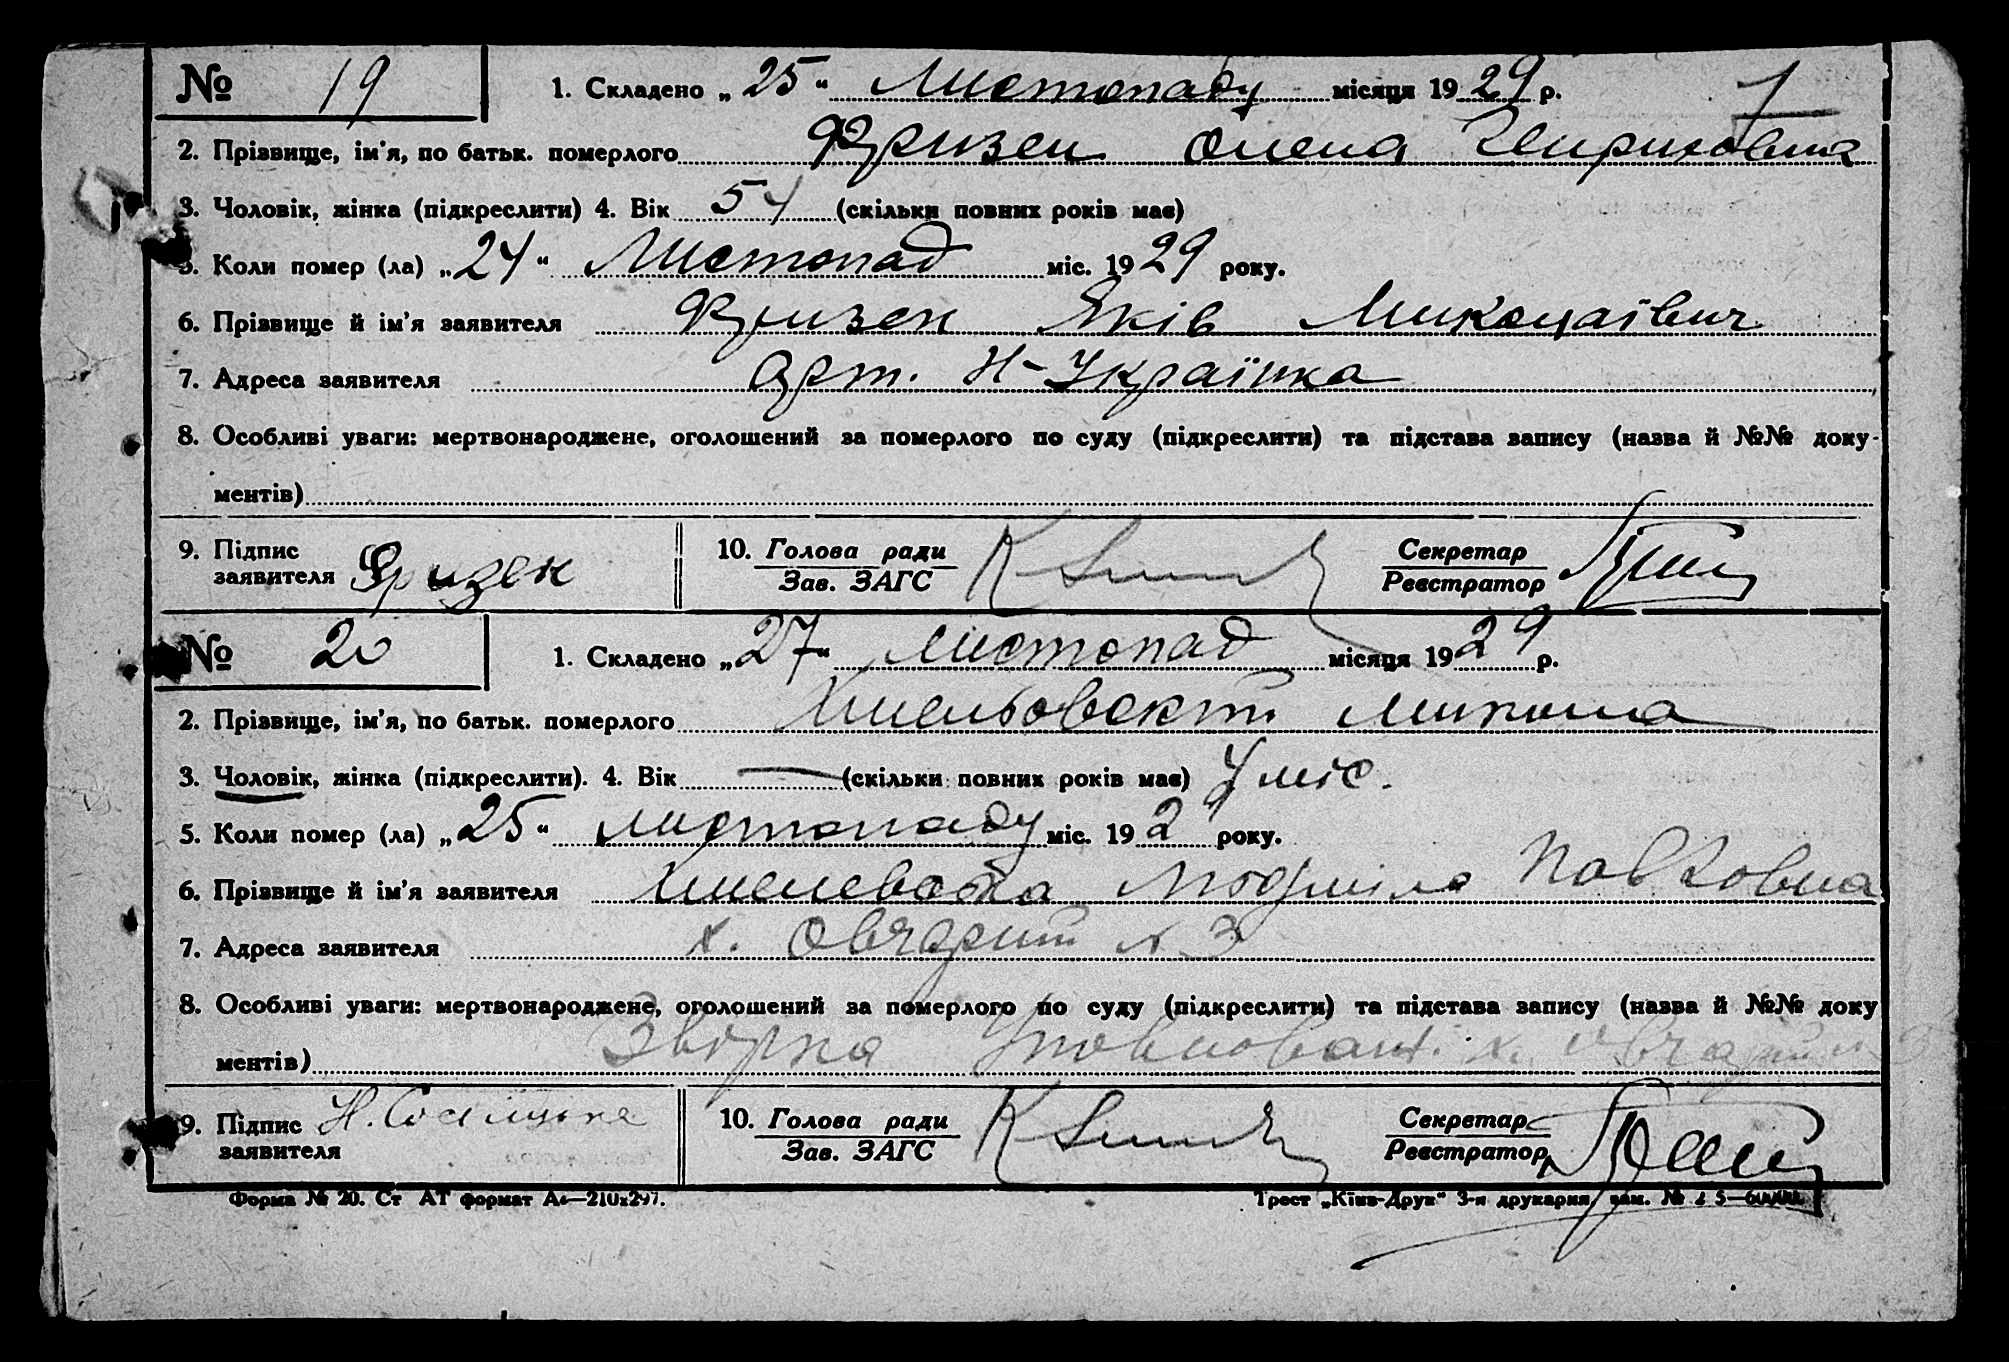 № 19 1. Складено „25“ Листопаду місяця 1929 р. 1
2. Прізвище, ім'я, по батьк. померлого Фризен Олена Генриховна
3. Чоловік, жінка (підкреслити) 4. Вік 54 (скільки повних років має)
5. Коли помер (ла) „24“ Листопад міс. 1929 року.
6. Прізвище й ім'я заявителя Фризен Яків Миколаївич
7. Адреса заявителя арт. Н-Українка
8. Особливі уваги: мертвонароджене, оголошений за померлого по суду (підкреслити) та підстава запису (назва й №№ доку-
ментів)
9. Підпис заявителя Фризен 10. Голова ради Секретар
Зав. ЗАГС Реєстратор
№ 20 1. Складено „27“ листопад місяця 1929 р.
2. Прізвище, ім'я, по батьк. померлого
3. Чоловік, жінка (підкреслити). 4. Вік — (скільки повних років має) міс.
5. Коли помер (ла) „25“ листопаду міс. 1929 року.
6. Прізвище й ім'я заявителя Людміла Павловна
7. Адреса заявителя х. Овчарит N 3
8. Особливі уваги: мертвонароджене, оголошений за померлого по суду (підкреслити) та підстава запису (назва й №№ доку
ментів) Звірка х.
9. Підпис Н. 10. Голова ради Секретар
заявителя Зав. ЗАГС Реєстратор
Форма № 20. Ст АТ формат А4—210x297. Трест „Київ-Друк“ 3-я друкарня, зам. №